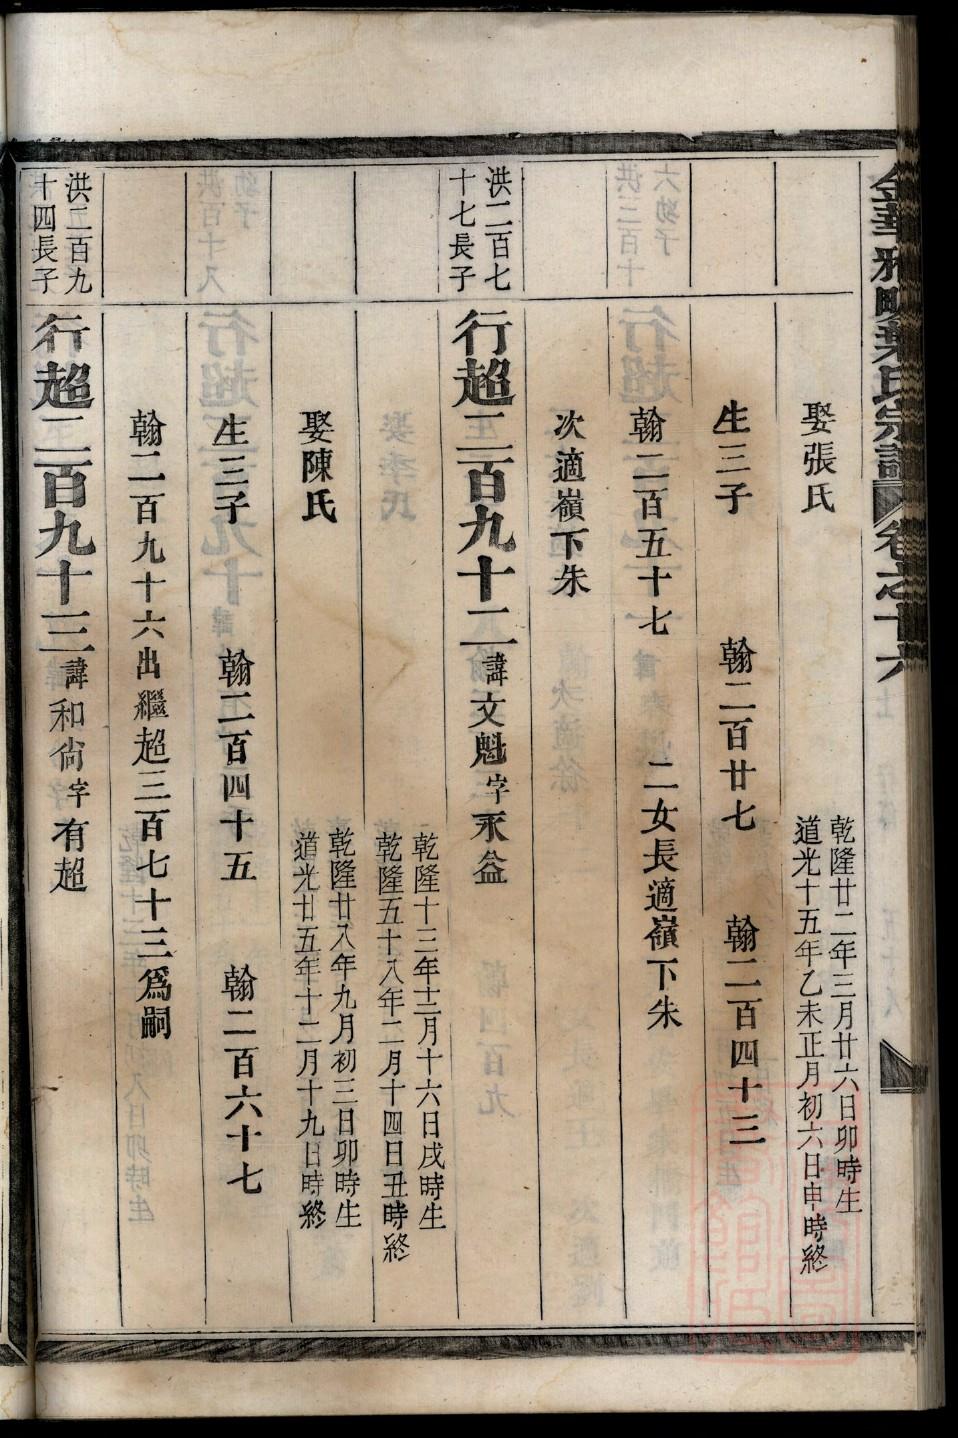 金華雅畈葉氏宗譜 卷之十六
娶張氏
乾隆廿二年三月廿六日卯時生
道光十五年乙未正月初六日申時終
生三子 翰二百廿七 翰二百四十三
翰二百五十七 二女長適嶺下朱
次適嶺下朱
洪二百七
十七長子
行超二百九十二諱文魁字永益
乾隆十三年十二月十六日戌時生
乾隆五十八年二月十四日丑時終
娶陳氏
乾隆廿八年九月初三日卯時生
道光廿五年十二月十九日時終
生三子 翰二百四十五 翰二百六十七
翰二百九十六出繼超三百七十三爲嗣
洪二百九
十四長子
行超二百九十三諱和尙字有超